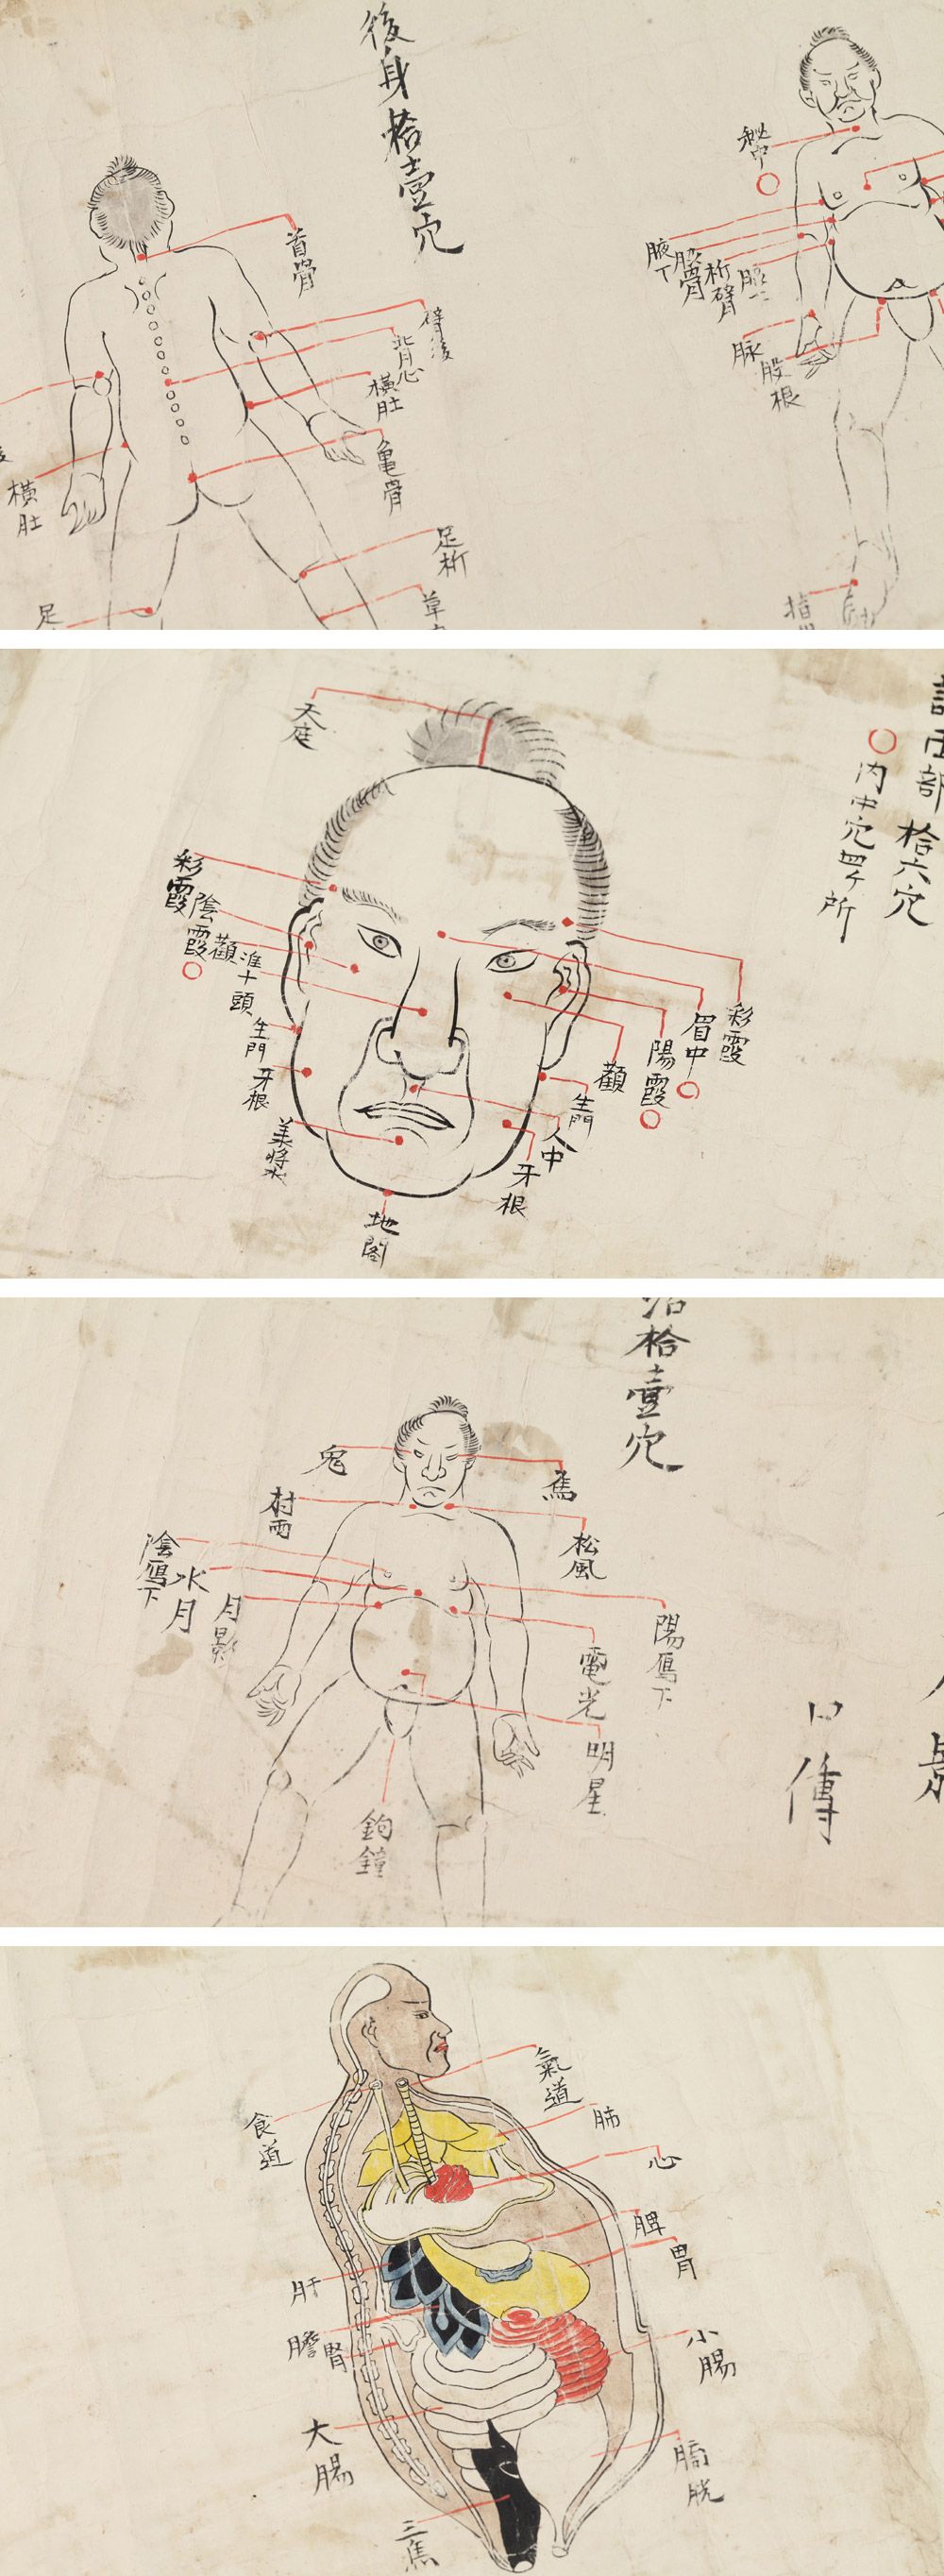 後身拾壹穴
首骨
臂後
背心
横肚
亀骨
足桁
草
横肚
足
秘中
腋下
桁臂
脉
股根
拾六穴
内中穴四ケ所
天庭
彩霞
陰霞
顴
准十頭
生門
牙根
地閣
彩霞
眉中
陽霞
顴
生門
人中
牙根
拾壹穴
口傳
鬼
村雨
松風
陰鴈下
水月
月影
陽鴈下
電光
明星
鉤鐘
氣道
肺
心
脾
胃
食道
肝
膽
腎
小腸
大腸
膀胱
三焦